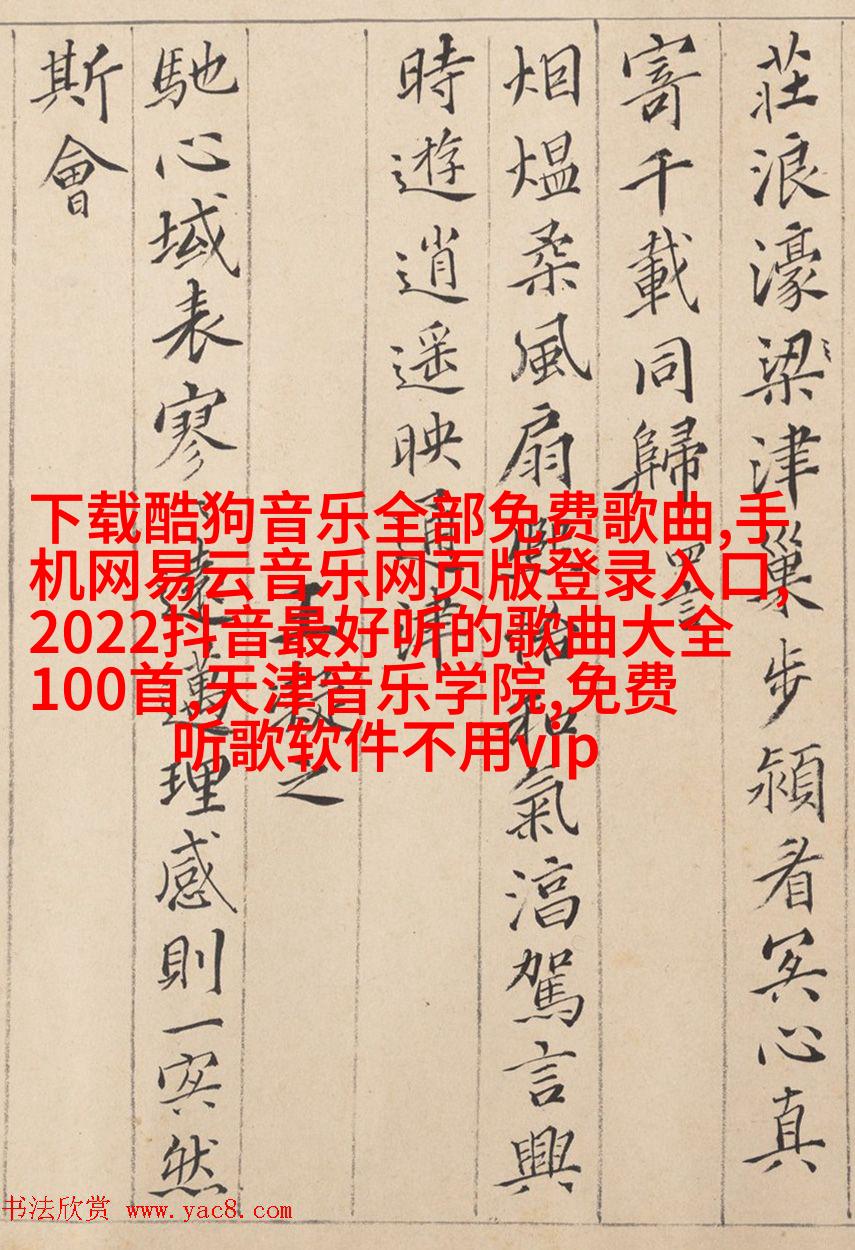 莊浪濠梁津巢步潁眉冥心真
寄千載同歸 四言
烟熅柔風扇熙怡和氣淳駕言興
時遊逍遥映通津
王凝之
馳心域表寥寥遠邁理感則一冥然
斯會
下载酷狗音乐全部免费歌曲,手
机网易云音乐网页版登录入口,
2022抖音最好听的歌曲大全
100首,天津音乐学院,免费
听歌软件不用vip
书法欣赏 www.yac8.com